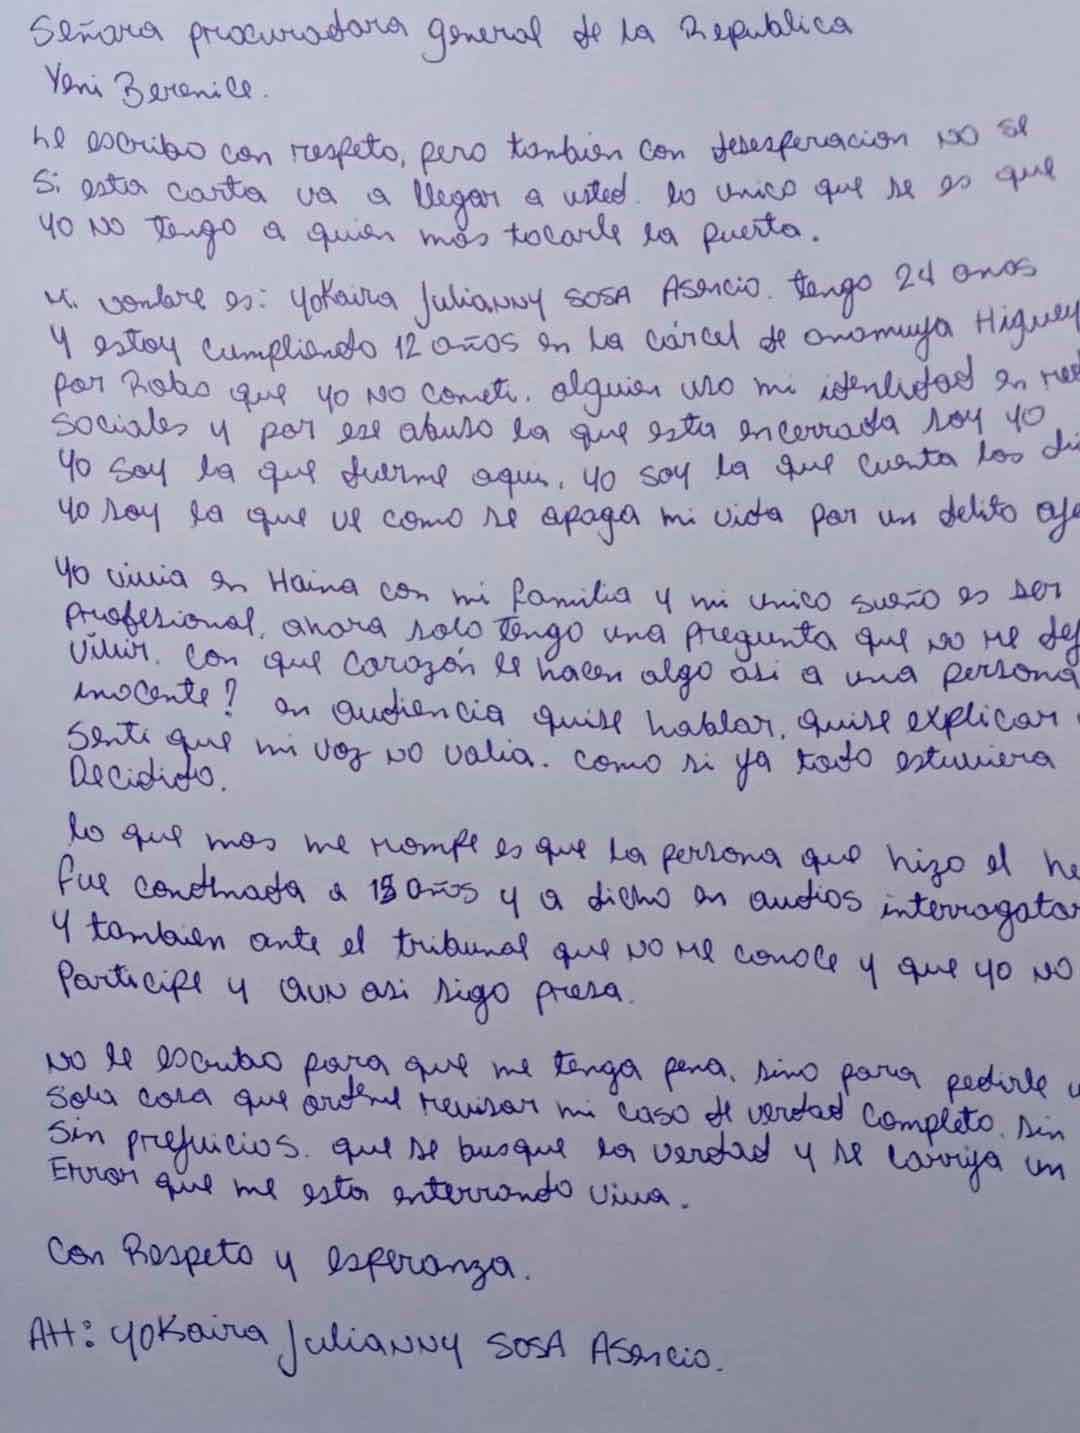 Señora procuradora general de la Republica
Yeni Berenice.
Le escribo con respeto, pero tambien con desesperacion No se
Si esta carta va a llegar a usted. lo unico que se es que
yo No tengo a quien mas tocarle la puerta.
Mi nombre es: Yokaira Julianny SOSA Asencio. tengo 24 anos
Y estoy cumpliendo 12 años en la cárcel de anamuya Higuey
por Robo que yo No cometi. alguien uso mi identidad en
sociales y por ese abuso la que esta encerrada soy yo
Yo soy la que duerme aqui, yo soy la que cuenta los
yo soy la que ve como se apaga mi vida por un delito
Yo vivia en Haina con mi familia y mi unico sueño es ser
profesional, ahora solo tengo una pregunta que no me
vivir. con que corazón le hacen algo asi a una persona
inocente? en audiencia quise hablar, quise explicar
Senti que mi voz No valia. como si ya todo estuviera
Decidido.
lo que mas me rompe es que la persona que hizo el
fue condenada a 15 años y a dicho en audios
Y tambien ante el tribunal que No me conoce y que yo No
Participe y aun asi sigo presa.
No le escribo para que me tenga pena, sino para pedirle
sola cosa que ordene revisar mi caso de verdad completo. sin
sin prejuicios. que se busque la verdad y se corrija un
Error que me esta enterrando viva.
Con Respeto y esperanza.
Att: Yokaira Julianny SOSA Asencio.